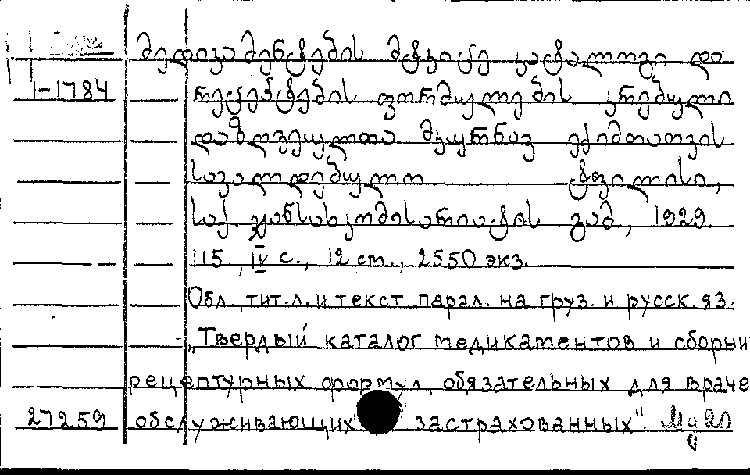 მედიკამენტების მტკიცე კატალოგი და
1-1784 რეცეპტების ფორმულების კრებული
დაზღვეულთა მკურნავ ექიმთათვის
სავალდებულო ტფილისი,
საქ. ჯანსახკომისარიატის გამ., 1929.
115, IV с., 12 см., 2550 экз.
Обл., тит. л. и текст парал. на груз. и русск. яз.
„Твердый каталог медикаментов и сборни
рецептурных формул, обязательных для враче
27259 обслуживающих застрахованных"